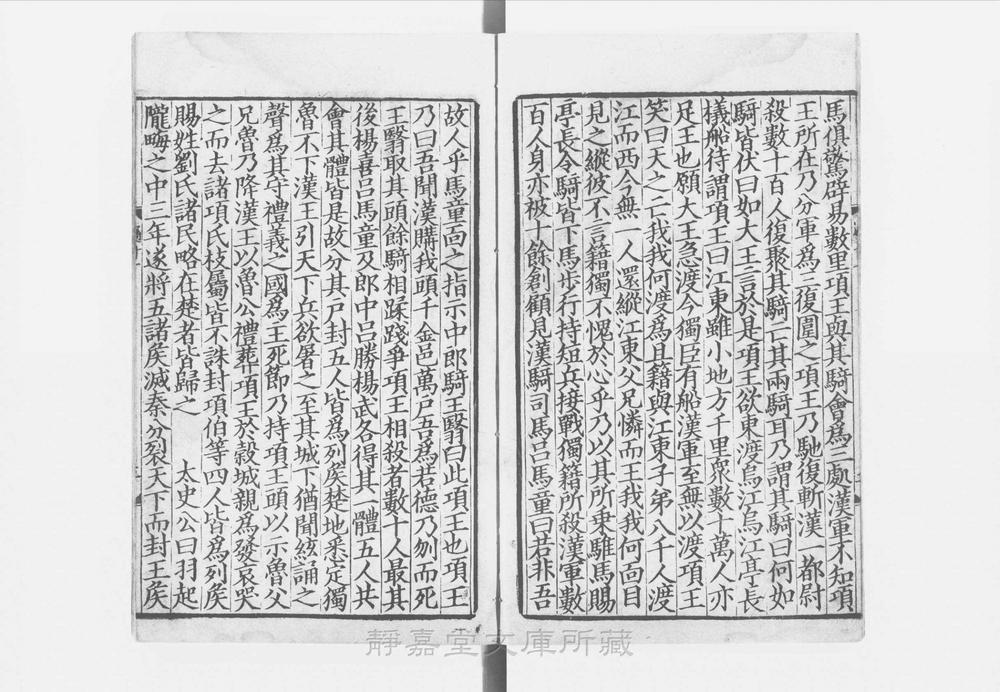 馬俱驚辟易數里項王與其騎會爲三處漢軍不知項
王所在乃分軍爲三復圍之項王乃馳復斬漢一都尉
殺數十百人復聚其騎亡其兩騎耳乃謂其騎曰何如
騎皆伏曰如大王言於是項王欲東渡烏江烏江亭長
檥船待謂項王曰江東雖小地方千里衆數十萬人亦
足王也願大王急渡今獨臣有船漢軍至無以渡項王
笑曰天之亡我我何渡爲且籍與江東子弟八千人渡
江而西今無一人還縱江東父兄憐而王我我何面目
見之縱彼不言籍獨不愧於心乎乃以其所乗騅馬賜
亭長令騎皆下馬步行持短兵接戰獨籍所殺漢軍數
百人身亦被十餘創顧見漢騎司馬吕馬童曰若非吾
故人乎馬童面之指示中郎騎王翳曰此項王也項王
乃曰吾聞漢購我頭千金邑萬户吾爲若德乃刎而死
王翳取其頭餘騎相蹂踐爭項王相殺者數十人最其
後楊喜吕馬童及郎中吕勝楊武各得其一體五人共
會其體皆是故分其户封五人皆爲列矦楚地悉定獨
魯不下漢王引天下兵欲屠之至其城下猶聞絃誦之
聲爲其守禮義之國爲王死節乃持項王頭以示魯父
兄魯乃降漢王以魯公禮葬項王於穀城親爲發哀哭
之而去諸項氏枝屬皆不誅封項伯等四人皆爲列矦
賜姓劉氏諸民略在楚者皆歸之 太史公曰羽起
隴畮之中三年遂將五諸矦滅秦分裂天下而封王矦
靜嘉堂文庫所藏